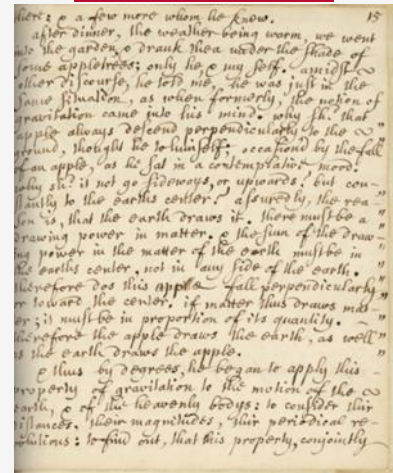 there: & a few more whom he knew. 15
after dinner, the weather being warm, we went
into the garden & drank thea under the shade of
some appletrees; only he & my self. amidst
other discourse, he told me, he was just in the
same situation, as when formerly, the notion of
gravitation came into his mind. why sh.d that
apple always descend perpendicularly to the
ground, thought he to himself; occasion'd by the fall
of an apple, as he sat in a contemplative mood.
why sh.d it not go sideways, or upwards? but con-
stantly to the earths center? assuredly, the rea-
son is, that the earth draws it. there must be a
drawing power in matter. & the sum of the draw-
ing power in the matter of the earth must be in
the earths center, not in any side of the earth.
therefore dos this apple fall perpendicularly
or toward the center. if matter thus draws mat-
ter; it must be in proportion of its quantity.
therefore the apple draws the earth, as well
as the earth draws the apple.
& thus by degrees, he began to apply this
property of gravitation to the motion of the
earth, & of the heavenly bodys: to consider thir
distances, their magnitudes, thir periodical re-
volutions: to find out, that this property, conjointly